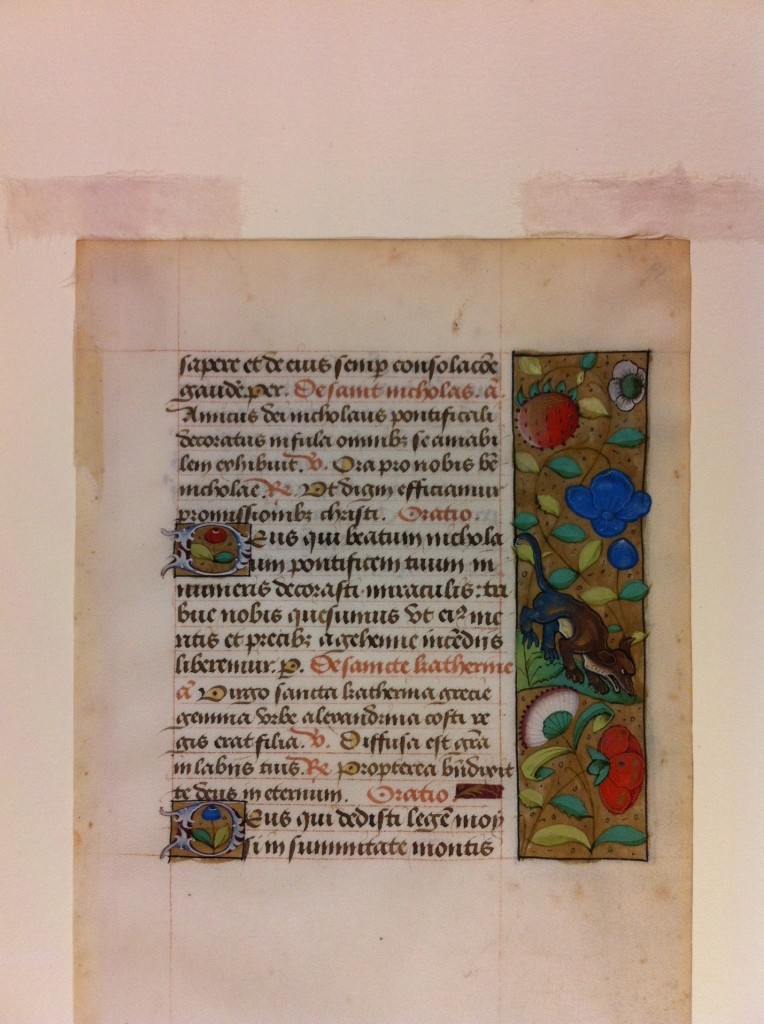 sapere et de eius semp consolacōe
gaudē. per. De saint nicholas. ā.
Amicus dei nicholaus pontificali
decoratus infula omnibꝫ se amabi
lem exhibuit. V. Ora pro nobis bē
nicholae. Re. Ut digni efficiamur
promissionibꝫ christi. Oratio.
Deus qui beatum nichola
um pontificem tuum in
numeris decorasti miraculis: tri
bue nobis quesumus vt eiꝰ me
ritis et precibꝫ a gehenne incēdijs
liberemur. P. De saincte katherine
ā Virgo sancta katherina grecie
gemma vrbe alexandrina costi re
gis erat filia. V. Diffusa est grā
in labijs tuis. Re Propterea bn̄dixit
te deus in eternum. Oratio
Deus qui dedisti legē moy
si in summitate montis